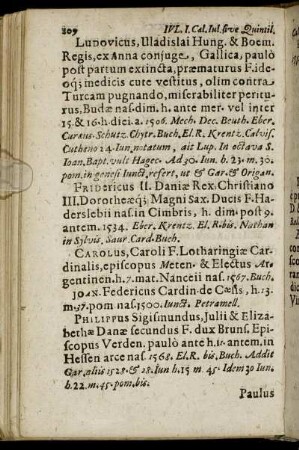 207 IVL. I. Cal. Iul. sive Quintil.
LUDOVICUS, Uladislai Hung. & Boem.
Regis, ex Anna conjuge, Gallica, paulò
post partum extincta, præmaturus F. ide-
oq; medicis cute vestitus, olim contra
Turcam pugnando, miserabiliter peritu-
rus, Budæ nas. dim. h. ante mer. vel inter
15. & 16. h. dici. a. 1506. Mech. Dec. Beuth. Eber.
Curaus. Schutz. Chytr. Buch. El. R. Krentz. Calvis.
Cutheno 24. Iun. notatum, ait Lup. In octava S.
Ioan. Bapt. vult Hagec. Ad 30. Iun. h. 23. m. 30.
pom. in genesi Iunct. refert, ut & Gar. & Origan.
FRIDERICUS II. Daniæ Rex. Christiano
III. Dorotheæq; Magni Sax. Ducis F. Ha-
derslebii nas. in Cimbris, h. dim. post 9.
antem. 1534. Eber. Krentz. El. R. bis. Nathan
in Sylvis, Saur. Card. Buch.
CAROLUS, Caroli F. Lotharingiæ Car-
dinalis, episcopus Meten. & Electus Ar-
gentinen. h. 7. mat. Nanceii nas. 1567. Buch.
JOAN. Federicus Cardin. de Cæsis, h. 13.
m. 97. pom nas. 1500. Iunct. Petramell.
PHILIPPUS Sigismundus, Julii & Eliza-
bethæ Danæ secundus F. dux Bruns. Epi-
scopus Verden. paulò ante h. 11. antem. in
Hessen arce nas. 1568. El. R. bis, Buch. Addit
Gar. aliis 1528. & 28. Iun h. 15. m. 45. Idem 30 Iun.
h. 22. m. 45. pom. bis.
Paulus